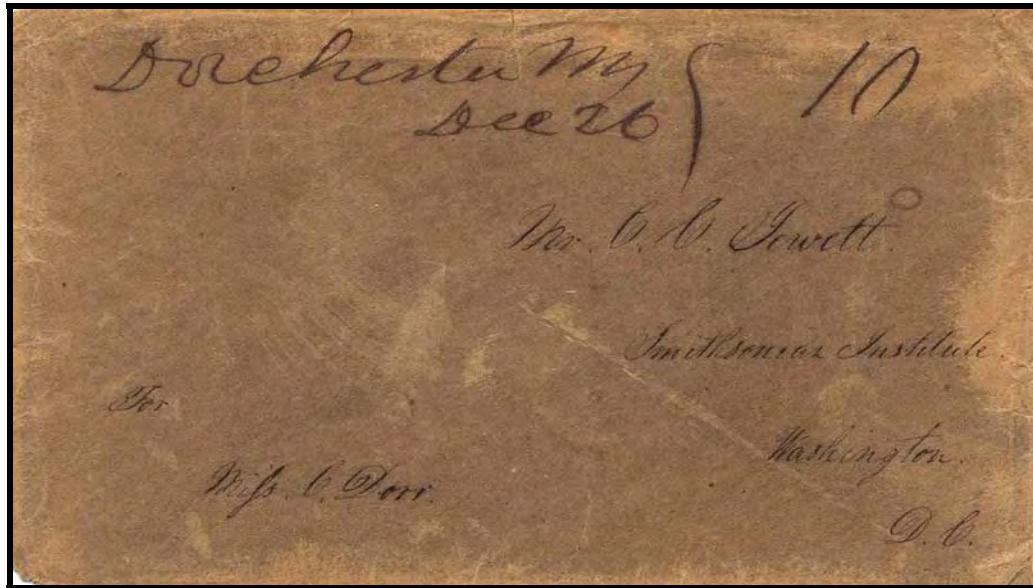 Dorchester Ms
Dec 26
10
Mr. C. C. Jowett.
Smithsonian Institute.
Washington.
D. C.
For
Miss. C. Dorr.